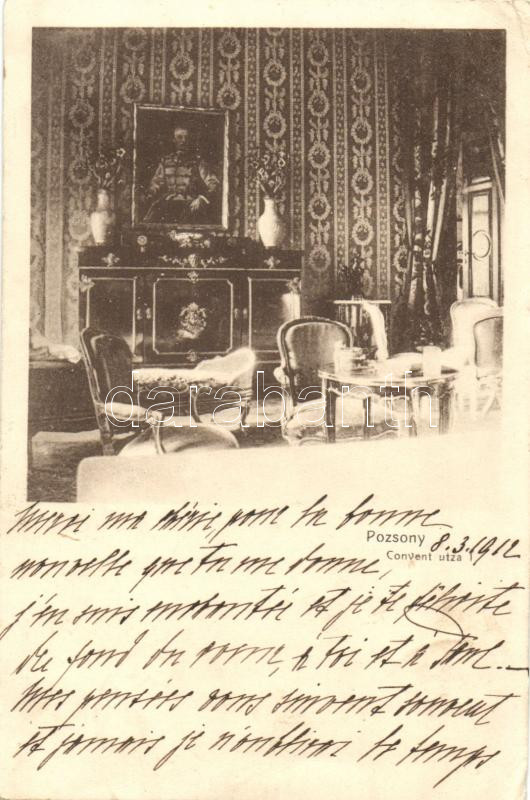 darabanth
Merci ma chérie, pour la bonne
Pozsony 8.3.1912
Convent utza 1
nouvelle que tu me donne,
j'en suis et je te félicite
du fond du coeur, à toi et à
Mes pensées vous suivent souvent
et jamais je n'oublirai le temps